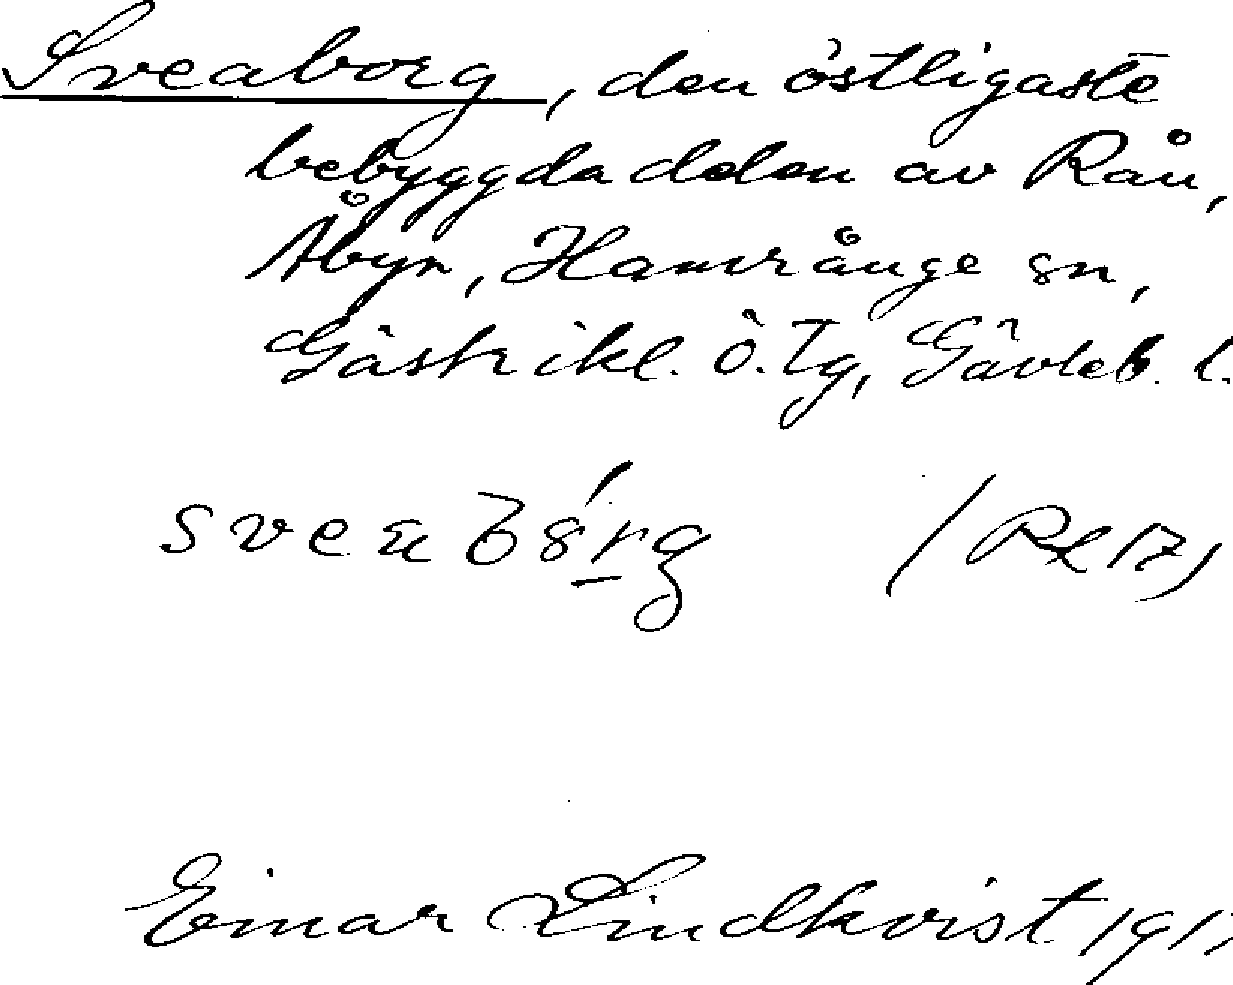 Sveaborg, den östligaste
bebyggda delen av Rån,
Åbyn, Hamrånge sn,
Gästrikl. ö. Tg, Gävleb. l.
Einar Lindkvist